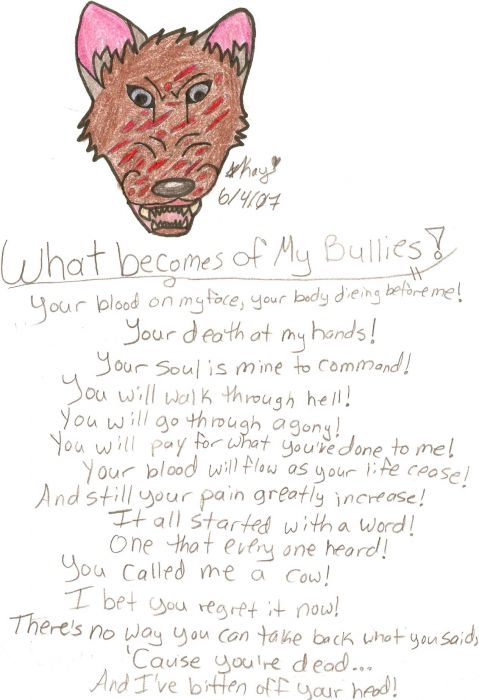 Khay
6/4/07
What becomes of My Bullies!
Your blood on my face, your body dieing before me!
Your death at my hands!
Your soul is mine to command!
You will walk through hell!
You will go through agony!
You will pay for what you've done to me!
Your blood will flow as your life cease!
And still your pain greatly increase!
It all started with a word!
One that every one heard!
You called me a cow!
I bet you regret it now!
There's no way you can take back what you said,
'Cause you're dead...
And I've bitten off your head!